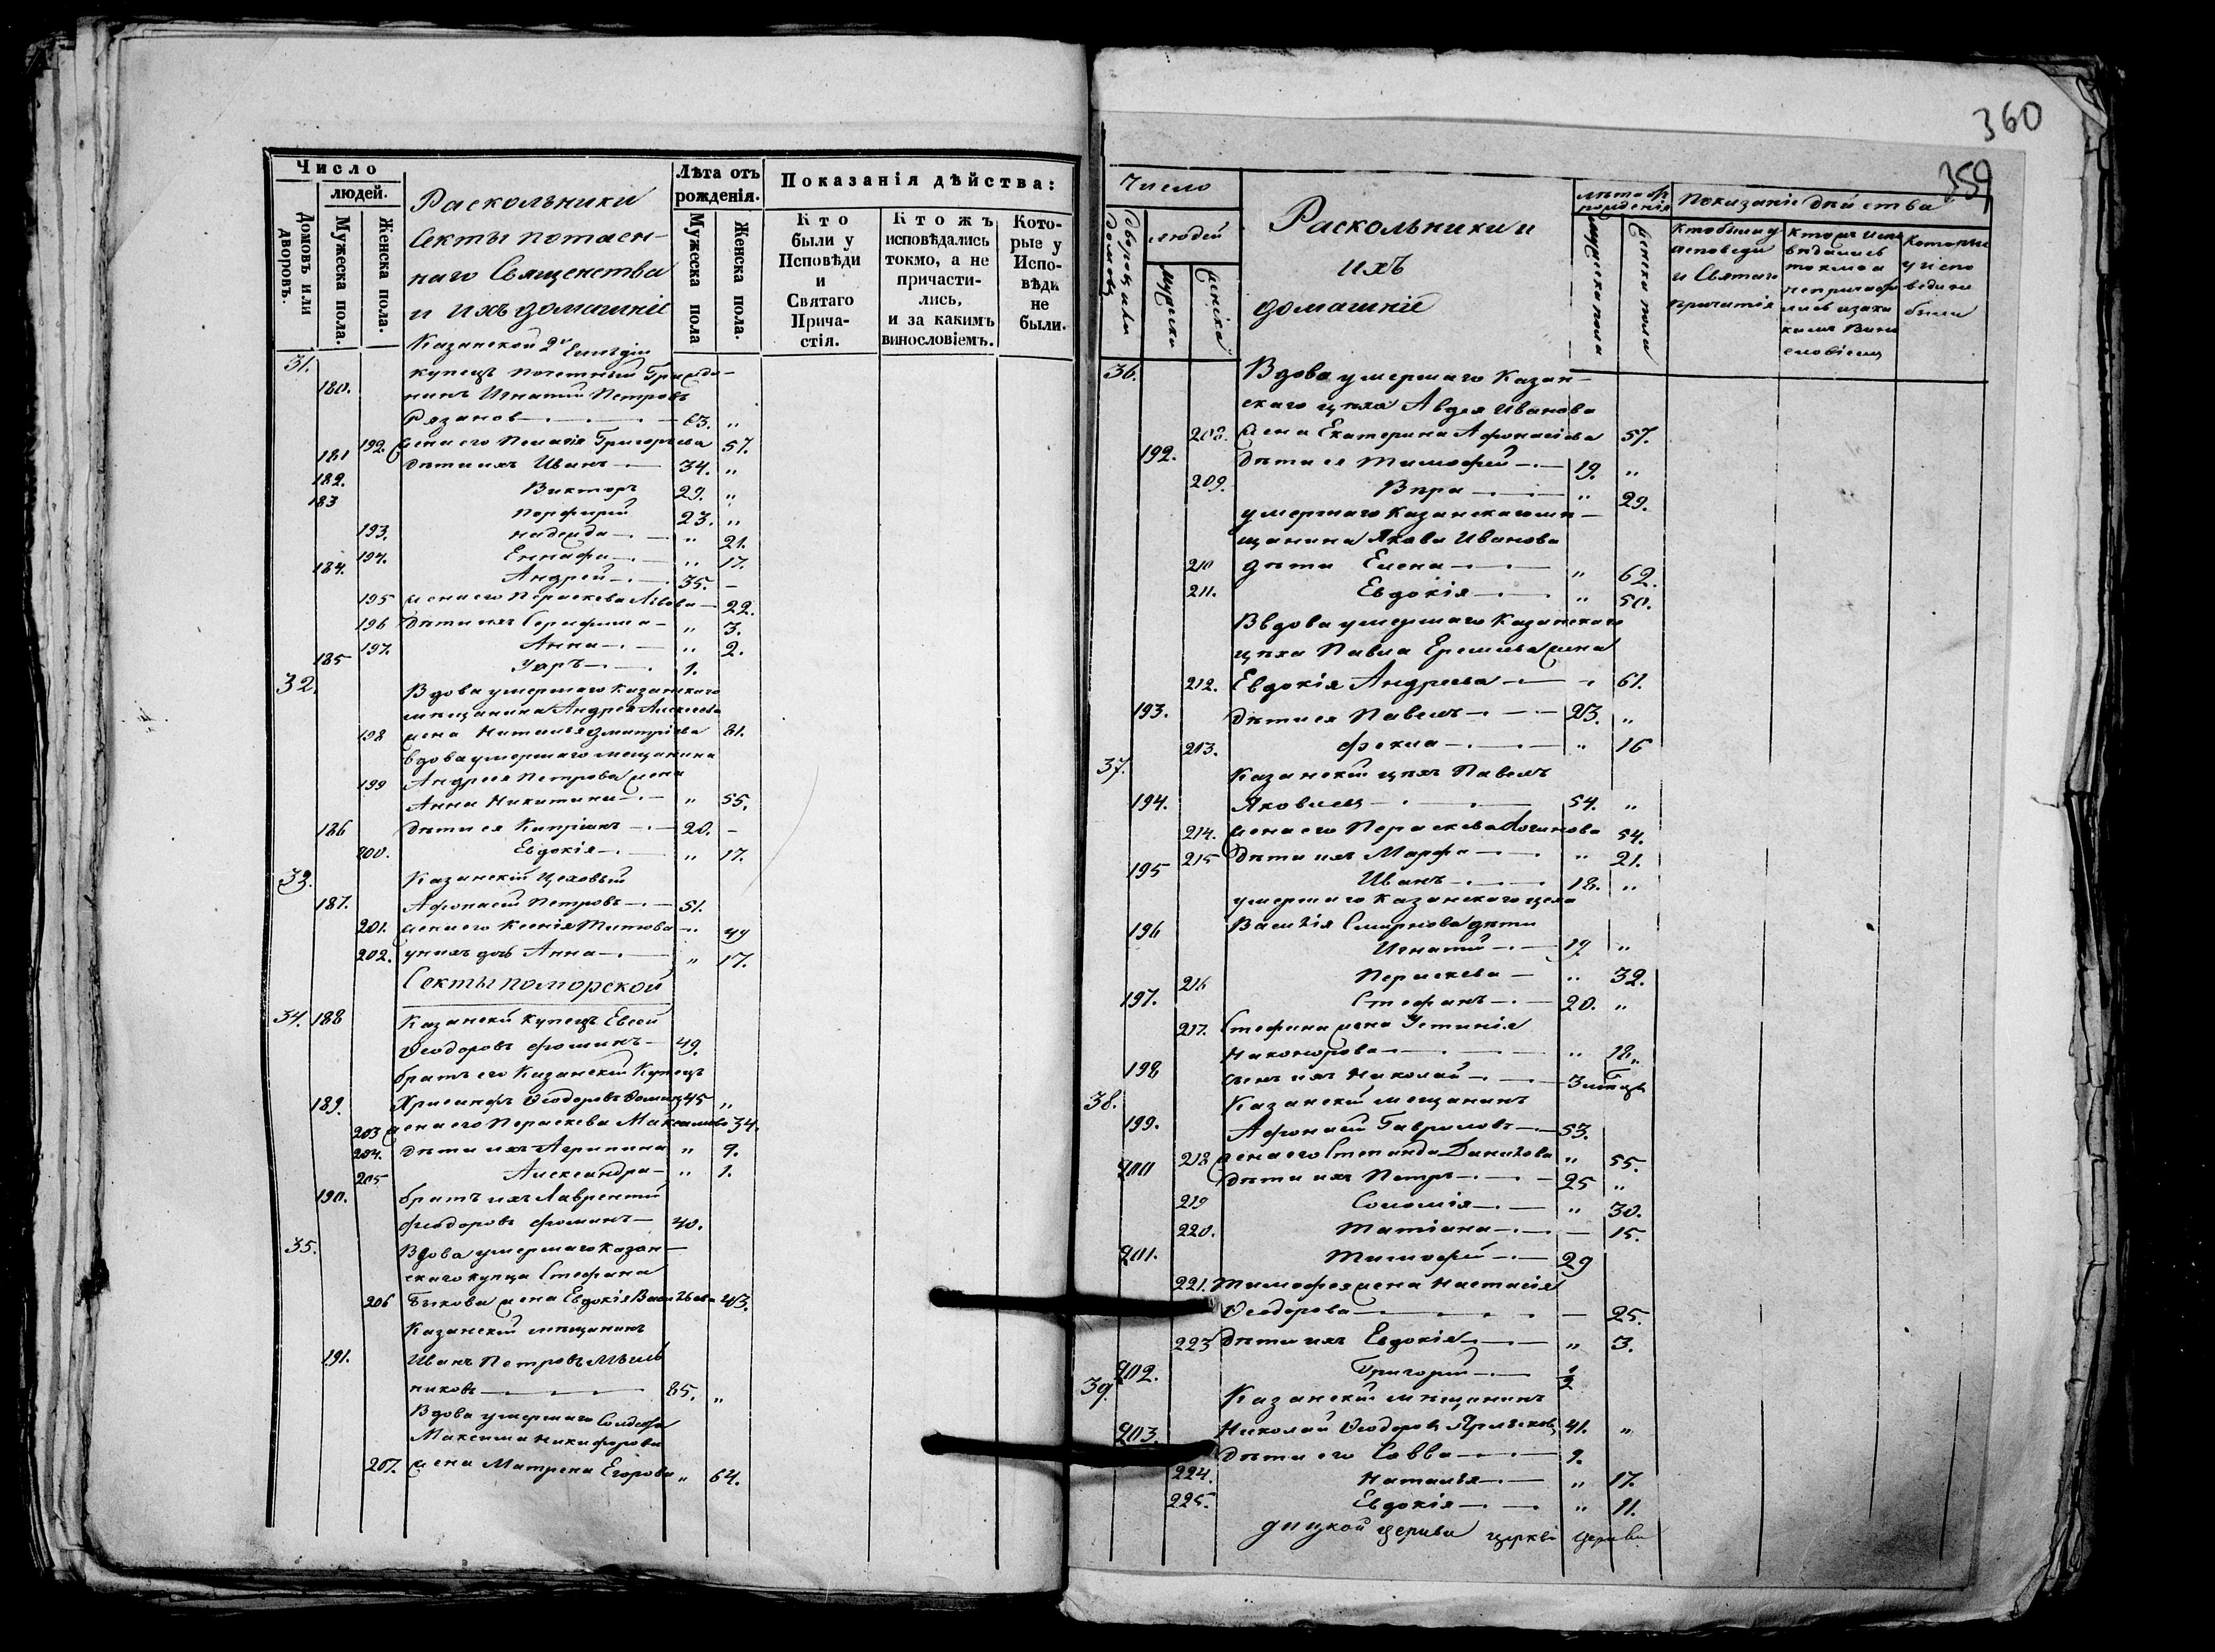 Число
людей.
Домовъ или дворовъ.
Мужеска пола.
Женска пола.
Раскольники
Секты потаен-
наго Священства
и ихъ домашніе
Лѣта отъ рожденія.
Мужеска пола
Женска пола.
Показанія дѣйства:
Кто были у Исповѣди и Святаго Прича-стія.
Кто жъ исповѣдались токмо, а не причасти-лись, и за какимъ винословіемъ.
Кото-рые у Испо-вѣди не были.
31. Казанской 2й Гильдіи
180. купецъ почетный Гражда-
нинъ Игнатій Петровъ
Рязанов 63. „
192. жена его Пелагія Григорьева 57.
181 дѣти ихъ Иванъ 34. „
182. Викторъ 29. „
183 Порфирій 23. „
193. Надежда „ 21.
194. Еннафа „ 17.
184. Андрей 35. –
195 жена его Параскева Львова 22.
196 дѣти ихъ Серафима „ 3.
197. Анна „ 2.
185 Уаръ 1.
32. Вдова умершаго Казанскаго
мѣщанина Андрея Алексѣева
198 жена Наталья Дмитріева 81.
вдова умершаго мещанина
199 Андрея Петрова жена
Анна Никитина „ 55.
186 дѣти ея Кипріанъ 20. –
200. Евдокія „ 17.
33. Казанскій Цеховый
187. Афонасій Петровъ 51.
201. жена его Ксенія Титова „ 49
202. у нихъ дочь Анна „ 17.
Секты поморской
34. 188 Казанскій купецъ Евсей
Ѳеодоровъ Фоминъ 49.
братъ его Казанскій Купецъ
189. Хрисанфъ Ѳеодоровъ Фоминъ 45 „
203 жена его Параскева Максимова 34.
204. дѣти ихъ Агрипина „ 9.
205 Александра „ 1.
190. братъ ихъ Лаврентій
Феодоровъ Фоминъ 40.
35. Вдова умершаго Казан-
скаго купца Стефана
206 Быкова жена Евдокія Васильева 43.
Казанскій мѣщанинъ
191. Иванъ Петровъ Мѣль
никовъ 85. „
Вдова умершаго Солдата
Максима Никифорова
207. жена Матрена Егорова „ 64.
360
359
Число
Дворовъ или домовъ
людей
Мужеска
женска
Раскольники и
ихъ
домашніе
лѣта отъ рожденія
мужеска пола
женска пола
Показаніе дѣйства
Кто были у исповеди и Святаго причастія
Кто жъ исповѣдались токмо а не причасти лись и за ка кимъ Вино словіемъ
Которые у испо веди не были
36. Вдова умершаго Казан-
скаго цѣха Авдея Иванова
208. жена Екатерина Афонасіева 57.
192. дѣти ея Тимофей 19. „
209. Вѣра „ 29.
умершаго Казанскаго мѣ-
щанина Якова Иванова
210 дѣти Елена „ 62.
211. Евдокія „ 50.
Ввдова умершаго Казанскаго
цѣха Павла Еремѣева жена
212. Евдокія Андреева „ 61.
193. дѣти ея Павелъ 23. „
213. Фекла „ 16
37. Казанскій цѣхъ Павелъ
194. Яковлевъ 54. „
214. жена его Параскева Логинова 54.
215 дѣти ихъ Марфа „ 21.
195 Иванъ 18. „
умершаго Казанскаго цеха
196 Василія Смирнова дѣти
Игнатій 19. „
216 Параскева „ 32.
197. Стефанъ 20. „
217. Стефана жена Устинія
Никонорова „ 18 „
198 сынъ ихъ Николай 3 мѣсяца
38. Казанскій мещанинъ
199. Афонасій Гавриловъ 53.
218 жена его Степанида Данилова „ 55.
200 дѣти ихъ Петръ 25 „
219 Соломія „ 30.
220. Татіана – 15.
201. Тимофей 29
221. Тимофея жена Настасія
Ѳеодорова – 25.
223 дѣти ихъ Евдокія „ 3.
202. Григорій ½
39. Казанскій мѣщанинъ
203. Николай Ѳеодоровъ 41. „
дѣти его Савва 9.
224. Наталья „ 17.
225. Евдокія „ 11.
церкви церкви